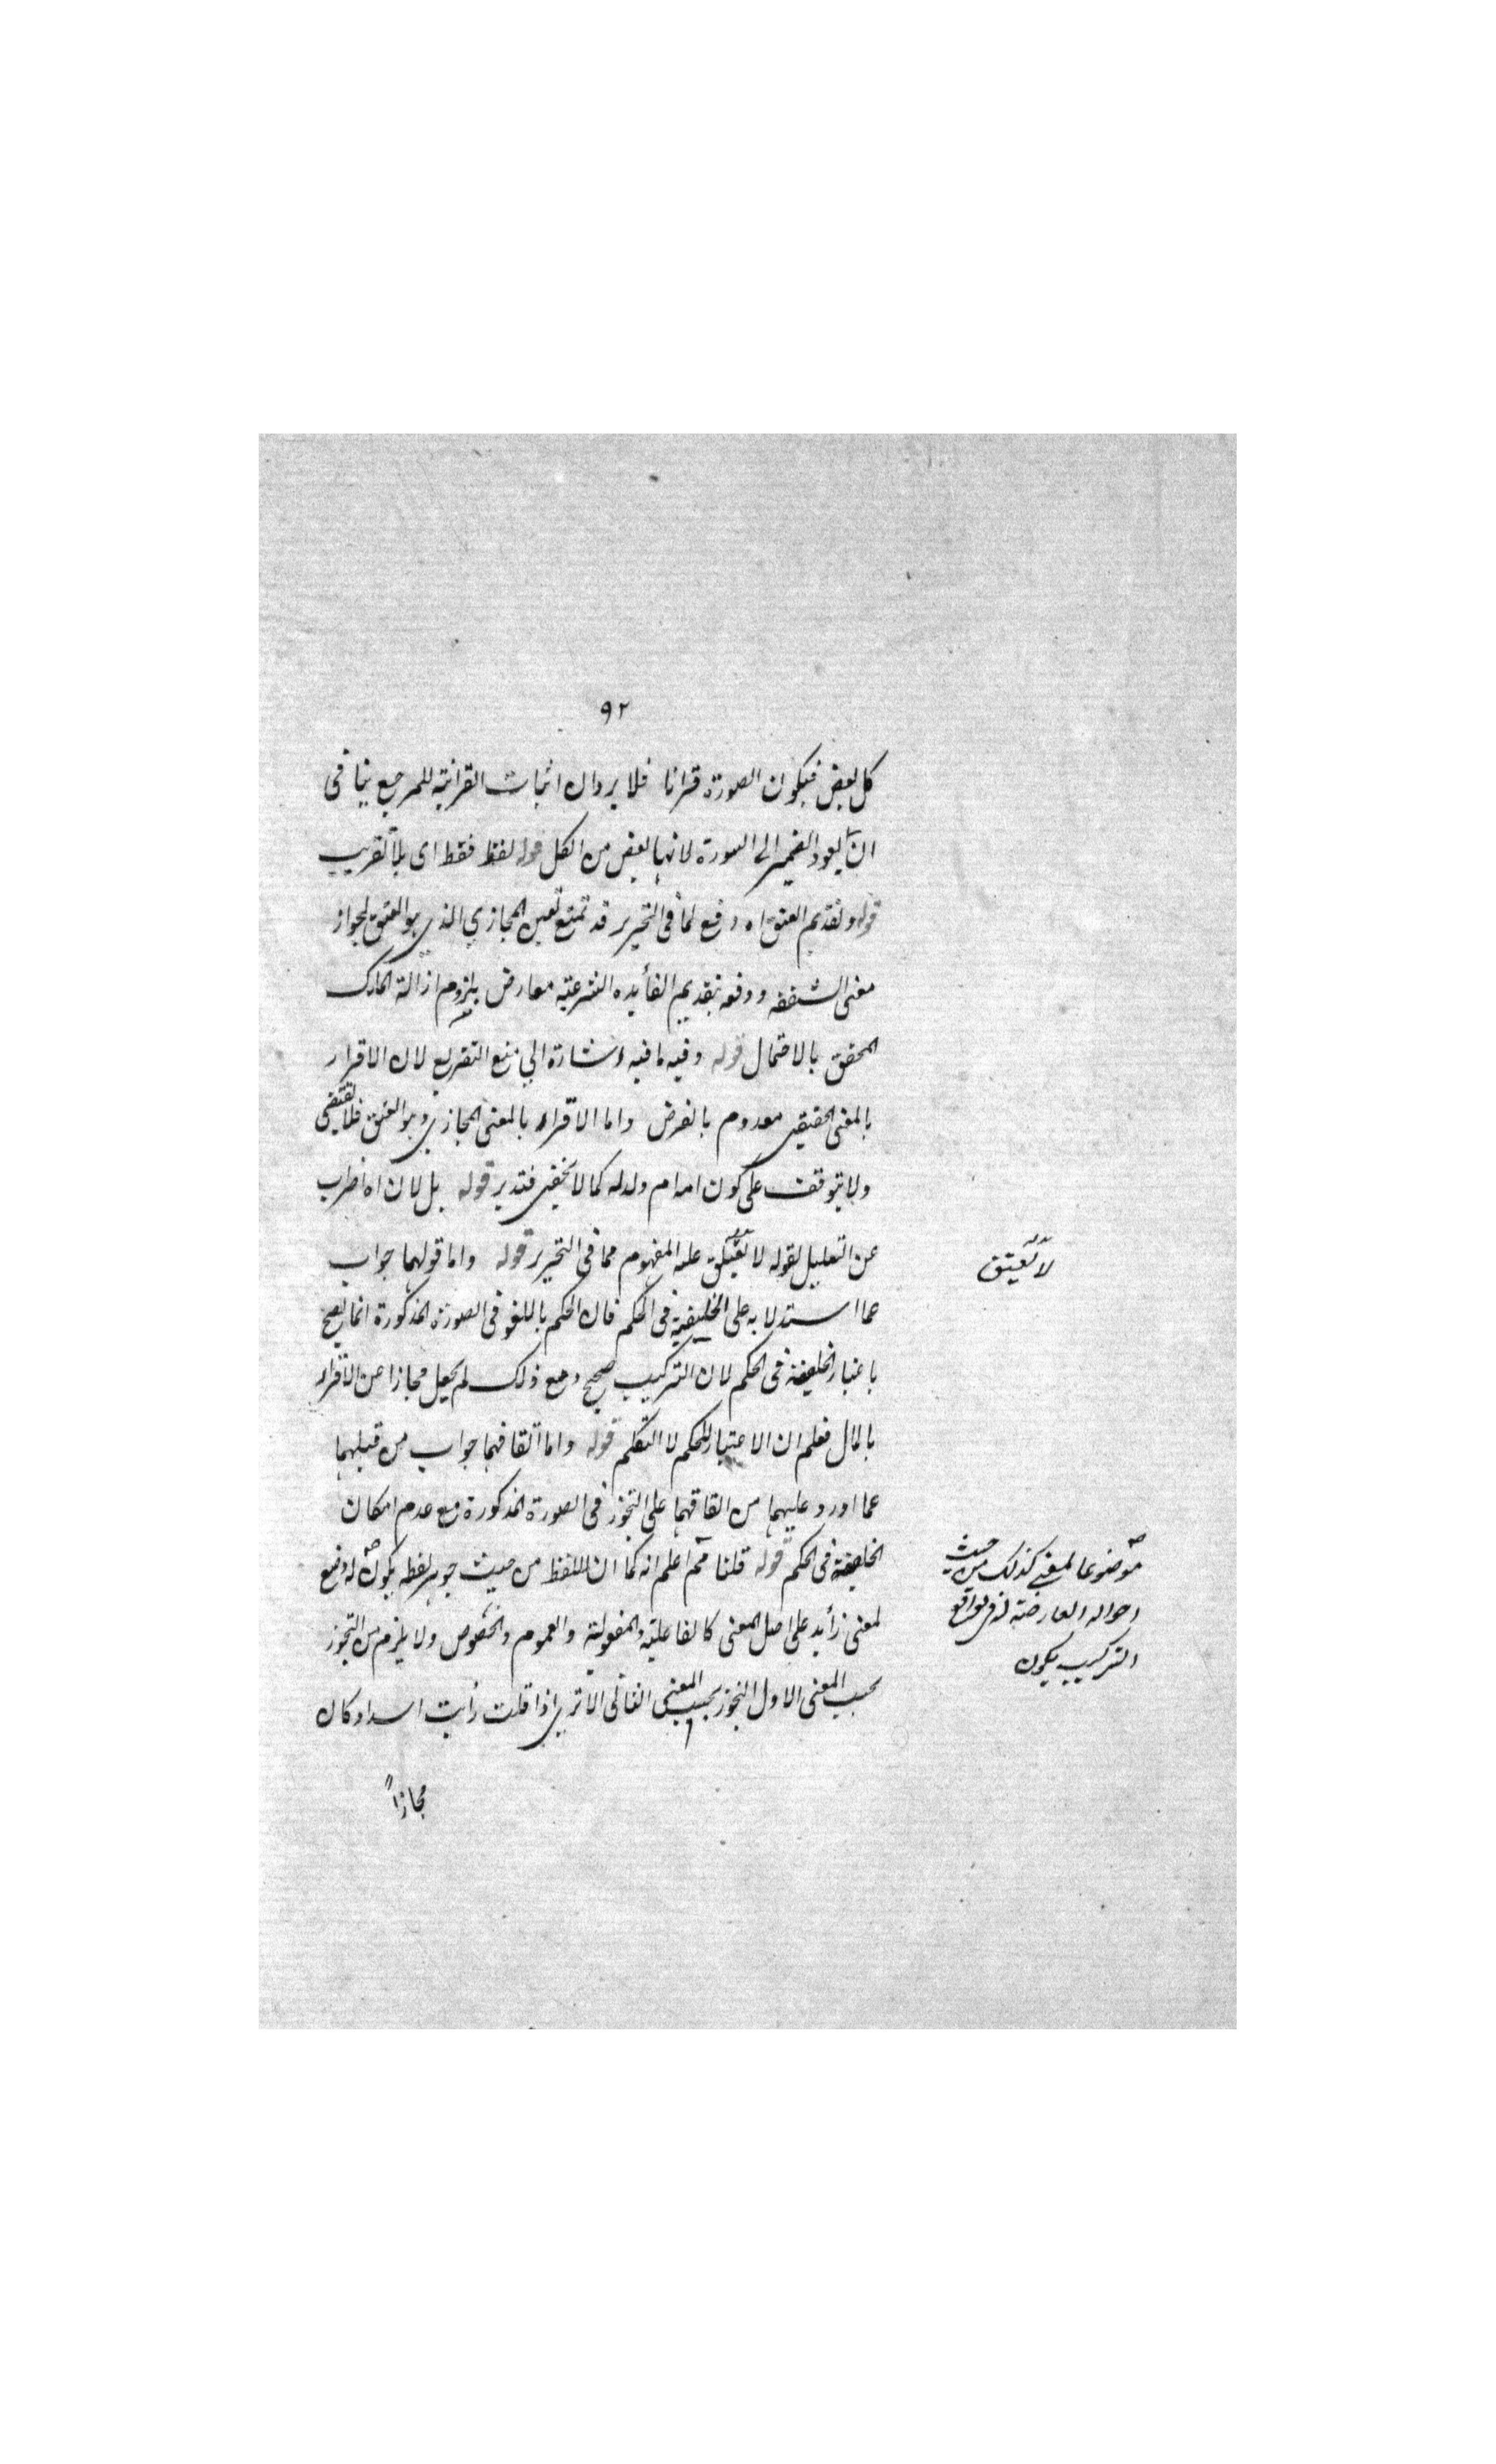 ٩٢
كل بعض فيكون الصورة قرانا فلا يرد ان اثبات القرانية للمرجع ينافى
ان يعود الضمير الى السورة لانها بعض من الكل قوله لفظ فقط اى بلا تقريب
قوله وتقديم العتق اه دفع لما فى التحرير قد تمنع تعين المجازي الذي هو العتق لجواز
معنى الشفقه ودفعه بتقديم الفائده الشرعية معارض بلزوم ازالة الملك
المحقق بالاحتمال قوله وفيه ما فيه اشارة الي منع التفريع لان الاقرار
بالمعنى الحقيقي معدوم بالفرض واما الاقرار بالمعنى المجازي وهو العتق فلا يقتضى
ولا يتوقف على كون امه ام ولد له كما لا يخفى فتدبر قوله بل لان اه اضراب
عن التعليل لقوله لا تعتق عليه المفهوم مما فى التحرير قوله واما قولهما جواب
لا تعتق
عما استدلا به على الخليفية فى الحكم فان الحكم باللغو فى الصورة المذكورة انما يصح
باعتبار الخليفة فى الحكم لان التركيب صحيح ومع ذلك لم يجعل مجازا عن الاقرار
بالمال فعلم ان الاعتبار للحكم لا التكلم قوله واما اتفاقهما جواب من قبلهما
عما اورد عليهما من اتفاقهما على التجوز فى الصورة المذكورة مع عدم امكان
الخليفة فى الحكم قوله قلنا ثم اعلم انه كما ان اللفظ من حيث جوهر لفظه يكون له وضع
موضوعا لمعنى كذلك من حيث
احواله العارضة له فى مواقع
التركيب يكون
لمعنى زائد على اصل المعنى كالفاعلية والمفعولية والعموم والخصوص ولا يلزم من التجوز
بحسب المعنى الاول التجوز بحسب المعنى الثانى الا ترى اذا قلت رأيت اسدا وكان
مجازاً